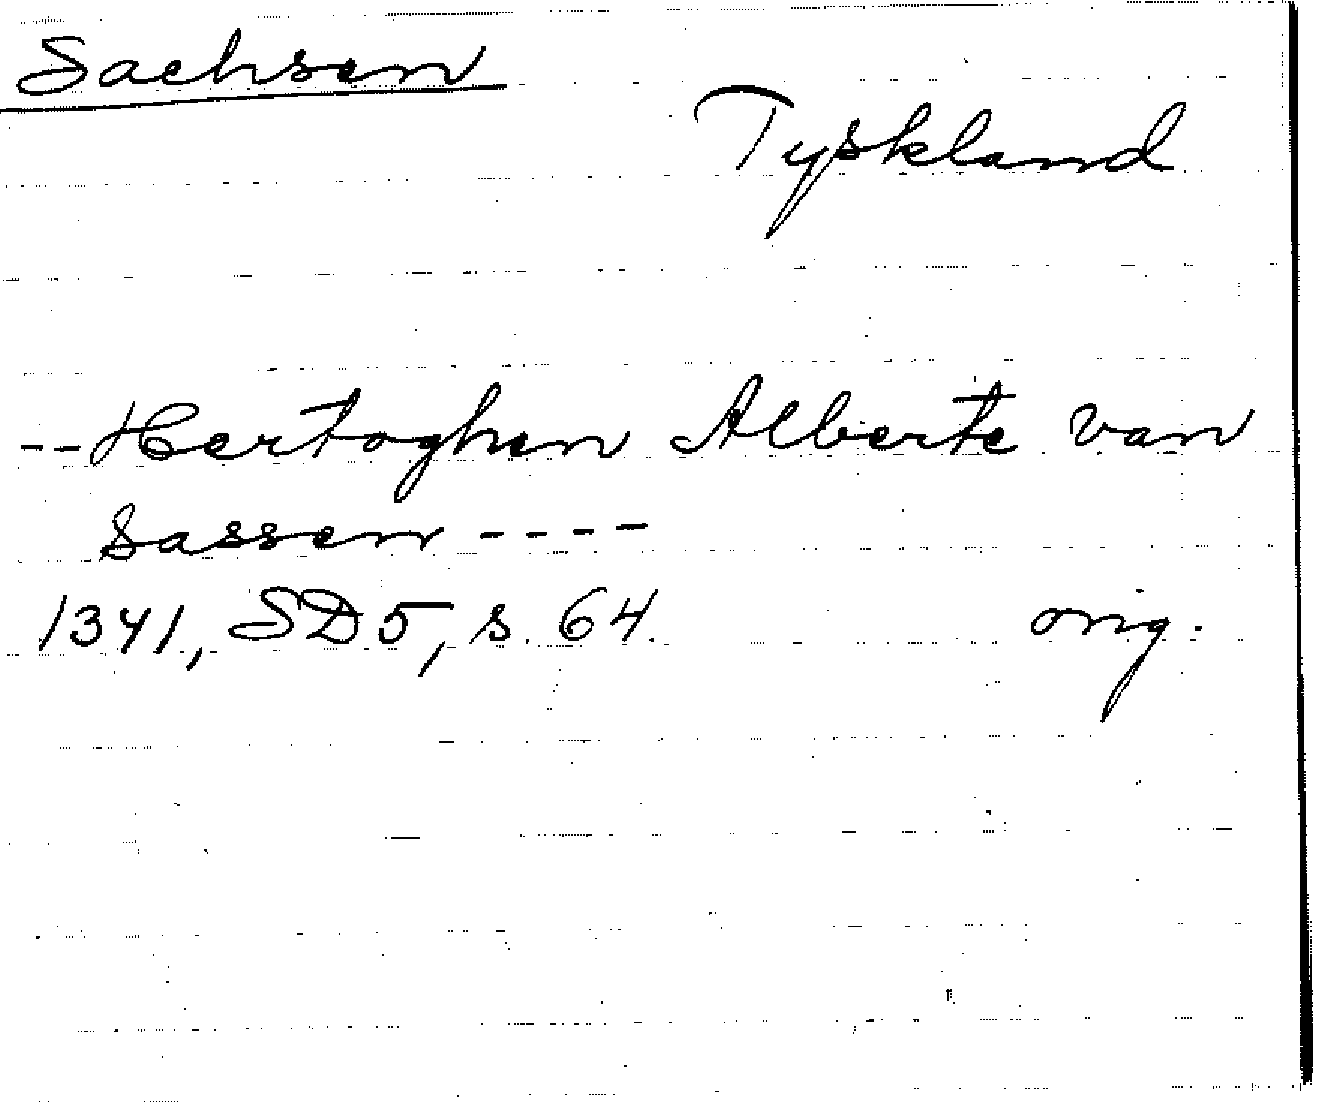 Sachsen
Tyskland
--Hertoghen Alberte van
Sassen ----
1341, SD5, s. 64. orig.